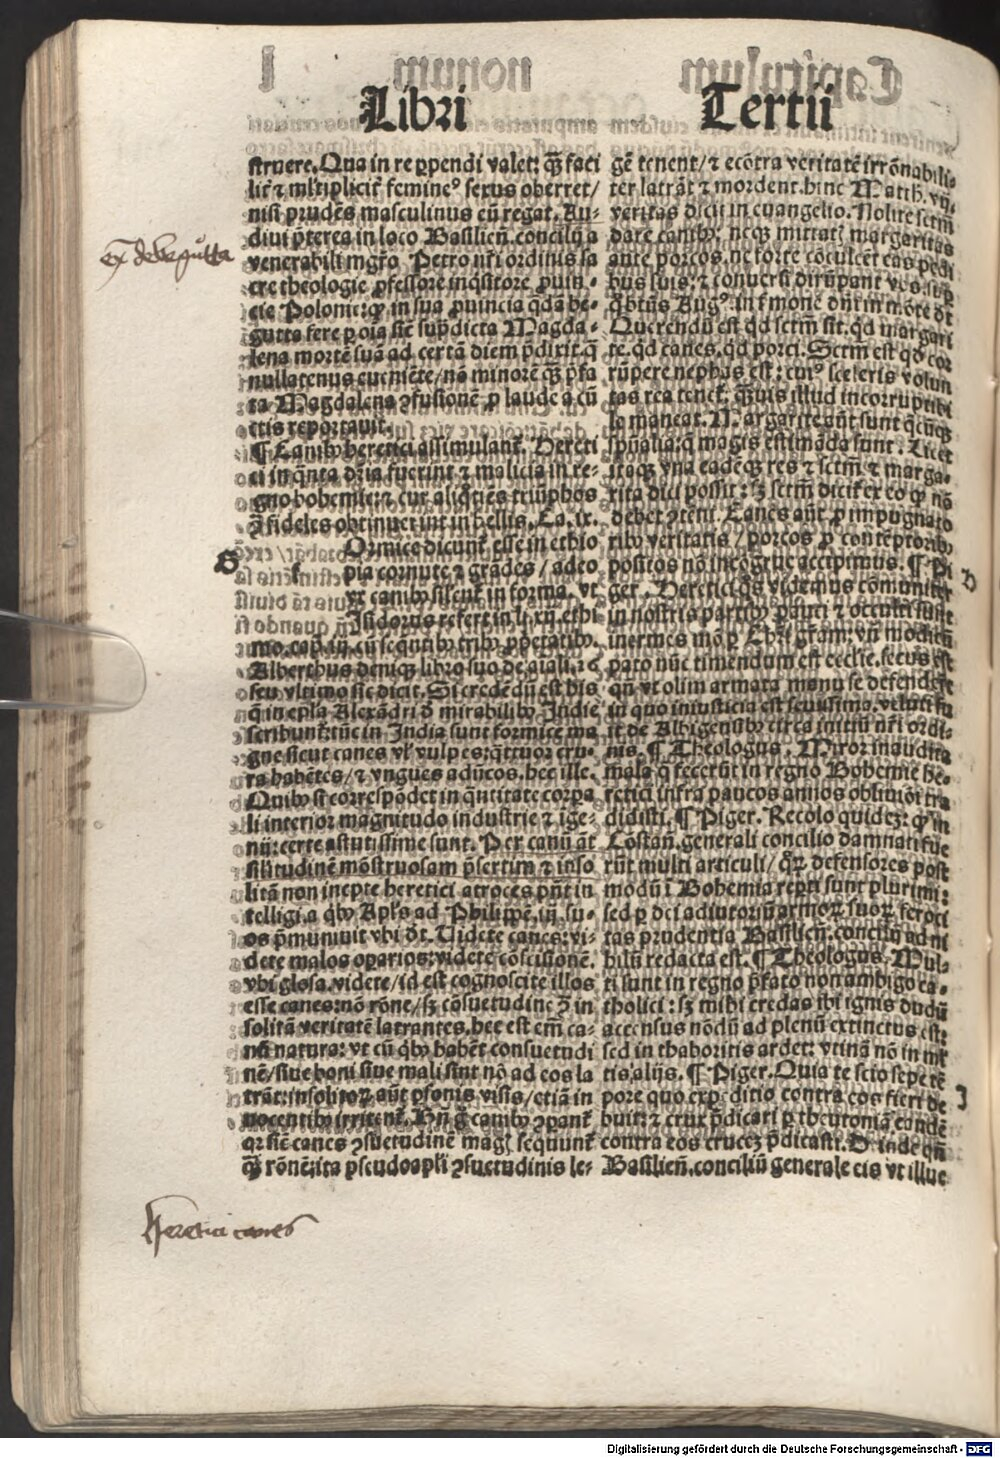 Libri Tertii
struere. Qua in re ꝑpendi valet: qȝ faci
nisi prudēs masculinus eū regat. Au-
diui p̄terea in loco Basilieñ. concilij a
venerabili mgr̄o Petro nr̄i ordinis sa
cre theologie ꝓfessore inqͥsitore ꝓuin-
cie Polonie: ꝙ in sua ꝓuincia qͣdā be-
gutta fere ꝑ oīa sic̄ sup̄dicta Magda-
lena mortē suā ad certā diem p̄dixit. q̄
nullatenus eueniēte / nō minorē qȝ p̄fa
ta Magdalena ꝯfusionē ꝓ laude a cū
ctis reportauit.
¶ Canibꝰ heretici assimulant̄. Hereti
ci in qͥnta dr̄ia fuerint ⁊ malicia in re-
gno bohemie: ⁊ cur aliqͦties triūphos
ꝯ̄ fideles obtinuerint in bellis. Ca. ix.
Ormice dicunt̄ esse in ethio
f
pia cornute ⁊ grādes / adeo
vt canibꝰ silent̄ in forma. vt
Isidorus refert in li. xij. ethi
mo. cap. iij. cū seqn̄tibꝰ tribꝰ ꝓpetatibꝰ.
Alberthus deniqȝ libro suo de aīali. 26
seu vltimo sic dicit. Si credēdū est his
q̄ in epl̄a Alexādri d̄ mirabilibꝰ Indie
scribunt̄: tūc in India sunt formice ma
gne sicut canes vl̓ vulpes: qͣttuor cru-
ra habētes / ⁊ vngues adūcos. hec ille.
Quibꝰ sꝫ correspōdet in qͣntitate corpa
li interior magnitudo industrie ⁊ ige-
nij: certe astutissime sunt. Per canū āt
silitudinē mōstruosam p̄sertim ⁊ inso
litā non inepte heretici atroces pn̄t in
telligi. a qͥbꝰ Apl̄s ad Philippē. iij. su-
os p̄muniuit vbi dt̄. Uidete canes: vi-
dete malos oꝑarios: videte cōscisionē.
vbi glosa. videte / id est cognoscite illos
esse canes: nō rōne / sꝫ cōsuetudine ꝯ̄ in
solitā veritatē latrantes. hec est em̄ ca-
nū natura: vt cū qͥbꝰ habēt consuetudi
nē / siue boni siue mali sint nō ad eos la
trāt: insolitoꝝ aūt ꝑsonis visis / etiā in
nocentibꝰ irritent̄. Bn̄ gͦ canibꝰ ꝯparant̄
qꝛ sic̄ canes ꝯsuetudinē magꝭ sequunt̄
qȝ rōnē: ita pseudoapl̄i ꝯsuetudinis le-
gē tenent / ⁊ ecōtra veritatē irrōnabili-
ter latrāt ⁊ mordent. hinc Matth. vij.
veritas dicit in euangelio. Nolite sctm̄
dare canibꝰ: neqȝ mittatꝭ margaritas
ante porcos. ne forte cōculcēt eas pedi
bus suis: ⁊ conuersi dirūpant vos. suꝑ
qͦ btūs Augꝰ. in ẜmone dn̄i in mōte dt̄
Querendū est qͥd sctm̄ sit. qͥd margari
te. qͥd canes. qͥd porci. Sctm̄ est qd̓ cor
rūpere nephas est: cuiꝰ sceleris volun
tas rea tenet̄. qͣuis illud incorruptibi
le maneat. Margarite aūt sunt qͥcūqȝ
spūalia: q̄ magis estimāda sunt. Licet
itaqȝ vna eadēqȝ res ⁊ sctm̄ ⁊ marga-
rita dici possit: sꝫ sctm̄ dicit̄ ex eo ꝙ nō
debet ꝯtēni. Canes aūt ꝓ impugnato
ribꝰ veritatis / porcos ꝓ contēptoribꝰ
positos nō incōgrue accipimus. ¶ Pi
ger. Heretici qͦs videmus cōmuniter
in nostris partibꝰ pauci ⁊ occulti sunt
pato nūc timendum est ecclīe. secus est
qn̄ vt olim armata manu se defendere
in quo iniusticia est seuissima. veluti fu
it de Albigensibꝰ circa initiū nr̄i ordi-
nis. ¶ Theologus. Miror inaudita
mala q̄ fecerūt in regno Bohemie he-
retici infra paucos annos obliuiōi tra
didisti. ¶ Piger. Recolo quidez: ꝙ in
Cōstañ. generali concilio damnati fue
rūt multi articuli / qͦꝝ defensores post
modū ī Bohemia reꝑti sunt plurimi:
sed ꝑ dei adiutoriū armoꝝ suoꝝ feroci
tas prudentia Basilieñ. concilij ad ni
hilū redacta est. ¶ Theologus. Mul-
ti sunt in regno p̄fato non ambigo ca-
tholici: sꝫ mihi credas ibi ignis dudū
accensus nōdū ad plenū extinctus est:
sed in thaboritis ardet: vtinā nō in ml̓
tis alijs. ¶ Piger. Quia te scio sepe tē
pore quo expeditio contra eos fieri de
buit: ⁊ crux p̄dicari ꝑ theutoniā eandē
contra eos crucez p̄dicasti. Deinde qn̄
Basilieñ. conciliū generale eis vt illuc
Heretici canes